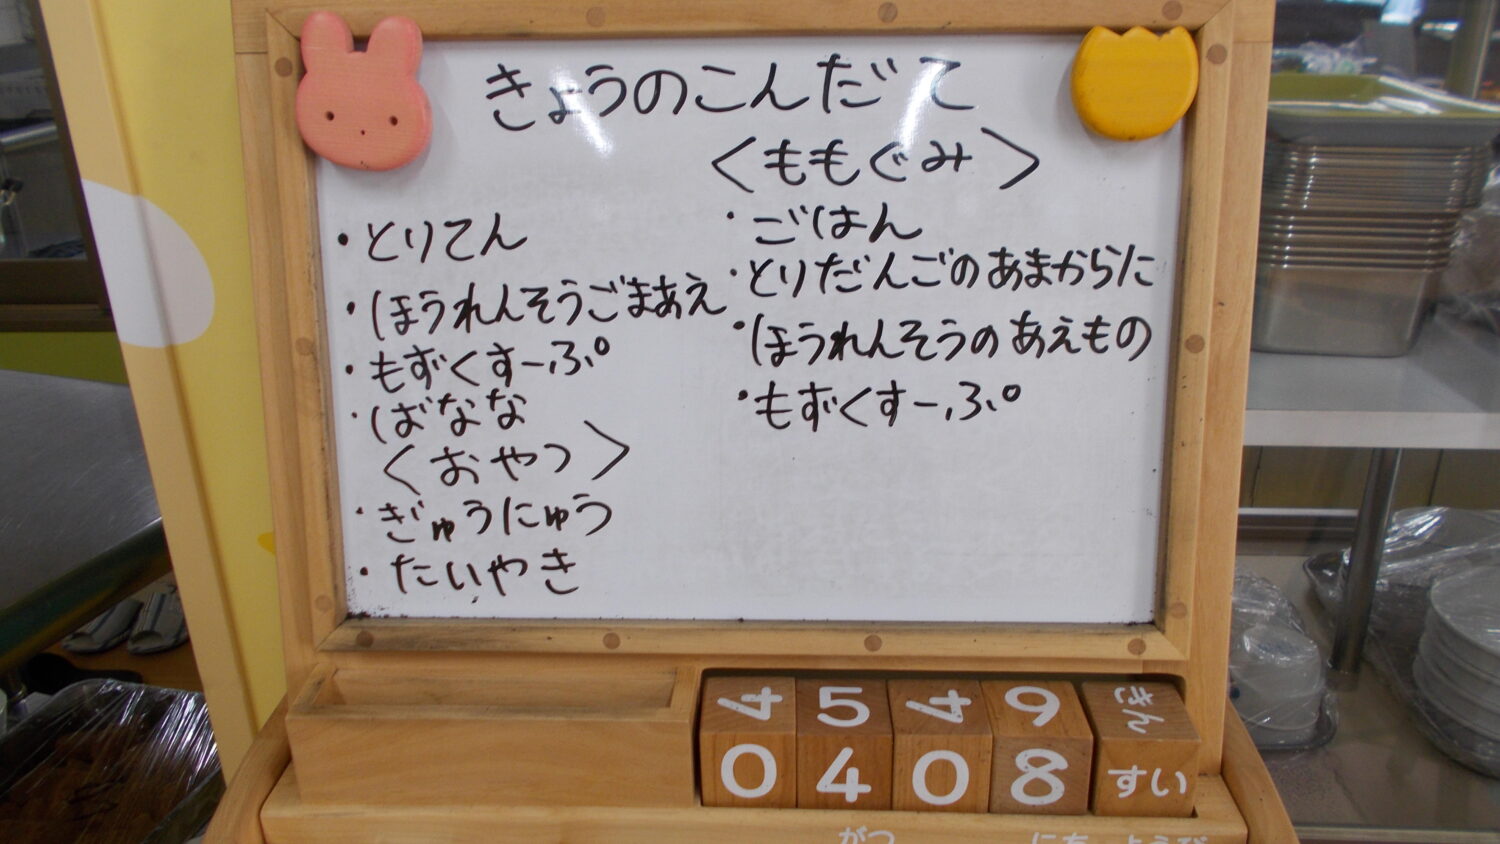 きょうのこんだて
・とりてん
・ほうれんそうごまあえ
・もずくすーぷ
・ばなな
＜おやつ＞
・ぎゅうにゅう
・たいやき
＜ももぐみ＞
・ごはん
・とりだんごのあまからに
・ほうれんそうのあえもの
・もずくすーぷ
4 5 4 9 きん
0 4 0 8 すい
がつ にち ようび